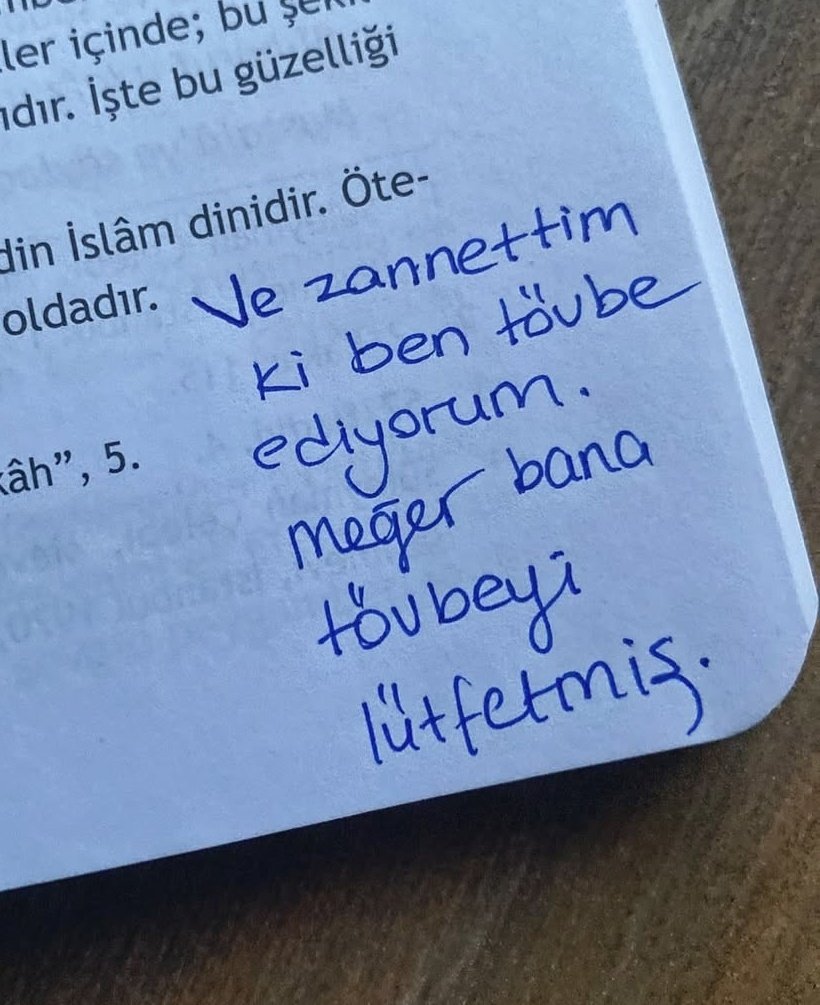 ler içinde; bu
ıdır. İşte bu güzelliği
din İslâm dinidir. Öte-
oldadır.
Ve zannettim
ki ben tövbe
ediyorum.
meğer bana
tövbeyi
lütfetmiş.
kâh”, 5.